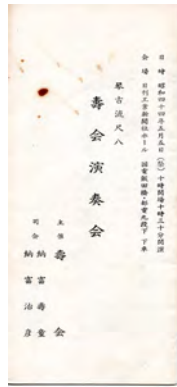 日時 昭和四十四年五月五日(祭)十時開場十時三十分開演
会場 日刊工業新聞社ホール 国電飯田橋・都電九段下 下車
琴古流尺八
壽会演奏会
主催 壽会
納富壽童
司会 納富治彦